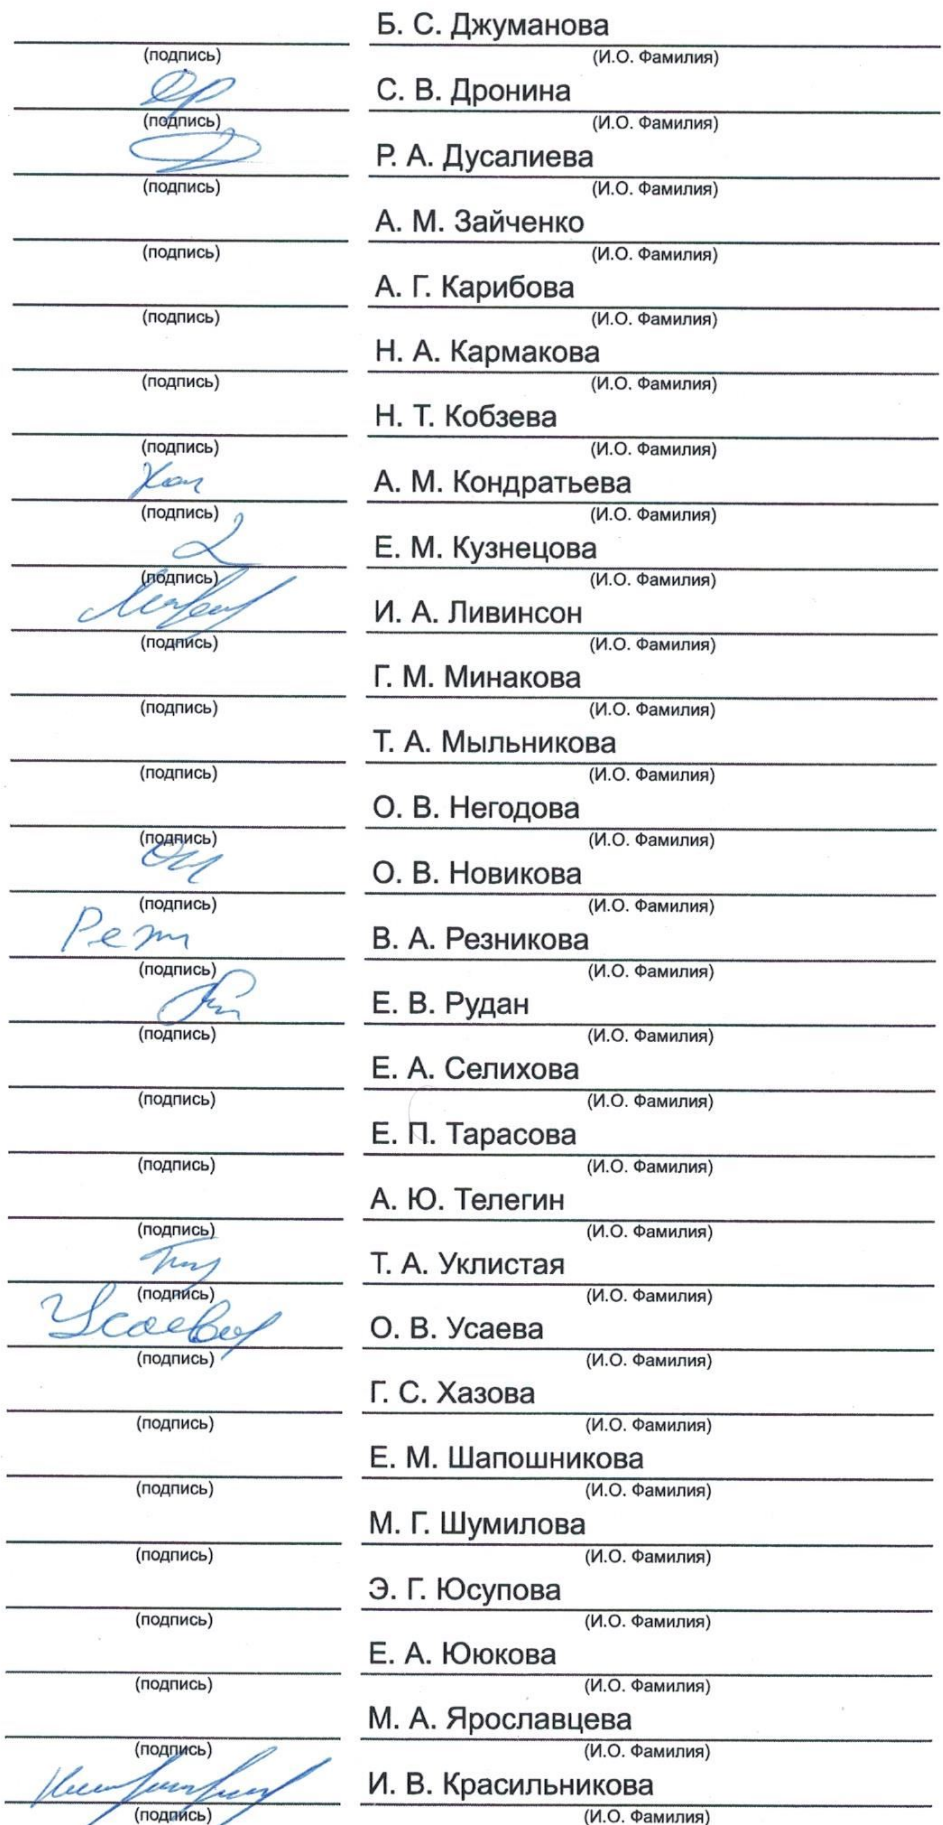 Б. С. Джуманова
(подпись) (И.О. Фамилия)
С. В. Дронина
(подпись) (И.О. Фамилия)
Р. А. Дусалиева
(подпись) (И.О. Фамилия)
А. М. Зайченко
(подпись) (И.О. Фамилия)
А. Г. Карибова
(подпись) (И.О. Фамилия)
Н. А. Кармакова
(подпись) (И.О. Фамилия)
Н. Т. Кобзева
(подпись) (И.О. Фамилия)
А. М. Кондратьева
(подпись) (И.О. Фамилия)
Е. М. Кузнецова
(подпись) (И.О. Фамилия)
И. А. Ливинсон
(подпись) (И.О. Фамилия)
Г. М. Минакова
(подпись) (И.О. Фамилия)
Т. А. Мыльникова
(подпись) (И.О. Фамилия)
О. В. Негодова
(подпись) (И.О. Фамилия)
О. В. Новикова
(подпись) (И.О. Фамилия)
В. А. Резникова
(подпись) (И.О. Фамилия)
Е. В. Рудан
(подпись) (И.О. Фамилия)
Е. А. Селихова
(подпись) (И.О. Фамилия)
Е. П. Тарасова
(подпись) (И.О. Фамилия)
А. Ю. Телегин
(подпись) (И.О. Фамилия)
Т. А. Уклистая
(подпись) (И.О. Фамилия)
Усаева О. В. Усаева
(подпись) (И.О. Фамилия)
Г. С. Хазова
(подпись) (И.О. Фамилия)
Е. М. Шапошникова
(подпись) (И.О. Фамилия)
М. Г. Шумилова
(подпись) (И.О. Фамилия)
Э. Г. Юсупова
(подпись) (И.О. Фамилия)
Е. А. Ююкова
(подпись) (И.О. Фамилия)
М. А. Ярославцева
(подпись) (И.О. Фамилия)
И. В. Красильникова
(подпись) (И.О. Фамилия)